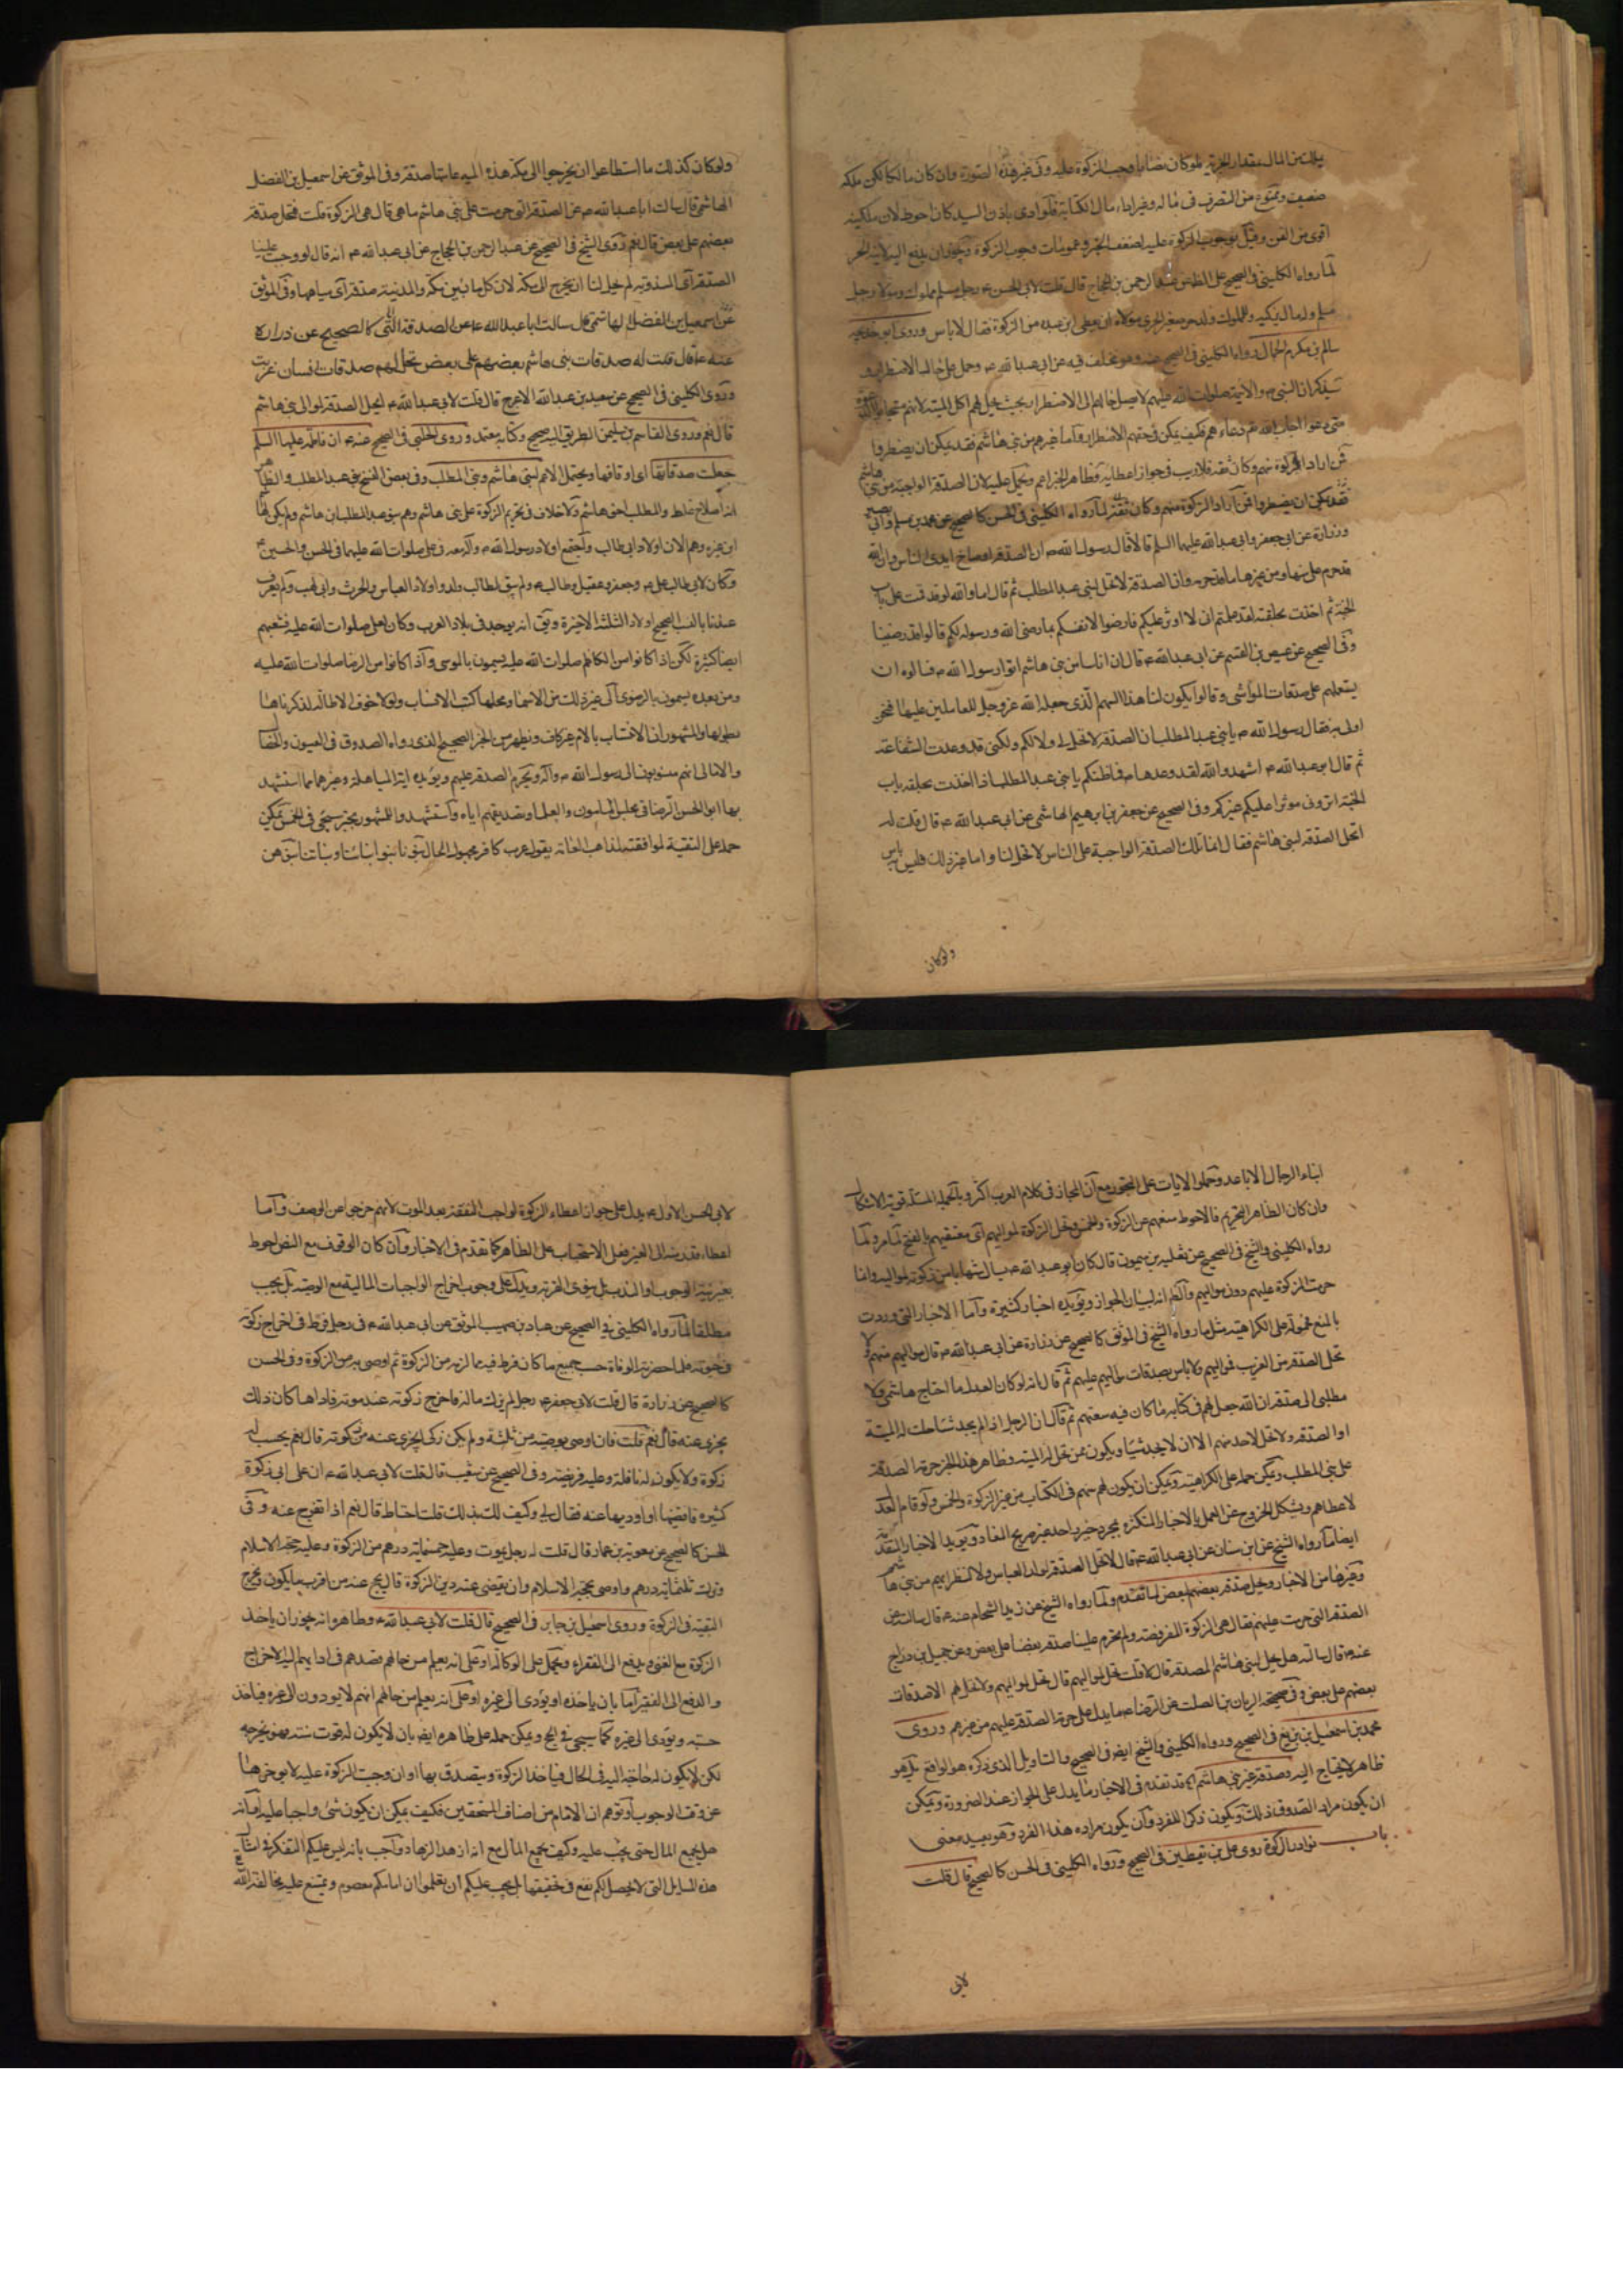 يملك من المال بمقدار الجزية لو كان نصابا وجب الزكوة عليه وفى غير هذه الصورة وان كان مالكا لكن ملكه
ضعيف وممنوع من التصرف فى ماله وغير اداء مال الكتابة فلو ادى باذن السيد كان احوط لان ملكيته
اقوى من القن وقيل بوجوب الزكوة عليه لضعف الخبر وعمومات وجوب الزكوة ويجوز ان يدفع اليه لابنه الحر
لما رواه الكلينى فى الصحيح على الظاهر عن عبد الرحمن بن الحجاج قال قلت لابى الحسن ع رجل مسلم مملوك ومولاه رجل
مسلم وله مال يزكيه وللمملوك ولد حر صغير ايجزى مولاه ان يعطى ابن عبده من الزكوة فقال لا باس وروى ابو خديجه
سالم بن مكرم الجمال رواه الكلينى فى الصحيح عنه وهو مختلف فيه عن ابى عبد الله ع وحمل على حال الاضطرار و
سيذكر ان النبى ص والائمة صلوات الله عليهم لا يصل حالهم الى الاضطرار بحيث يحل لهم اكل الميتة لانهم مستجابوا الدعوة
متى دعوا اجاب الله تعم دعاءهم فكيف يمكن فى حقهم الاضطرار واما غيرهم من بنى هاشم فقد يمكن ان يضطروا
فمن اراد الزكوة منهم وكان ثقة فلا ريب فى جواز اعطائه وظاهر الخبر اعم ويحمل عليه لان الصدقة الواجبة من بنى هاشم
فقد يمكن ان يضطروا فمن اراد الزكوة منهم وكان ثقة لما رواه الكلينى فى الحسن كالصحيح عن محمد بن مسلم وابى بصير
وزرارة عن ابى جعفر وابى عبد الله عليهما السلم قالا قال رسول الله ص ان الصدقة اوساخ ايدى الناس وان الله
قد حرم على منها ومن غيرها ما قد حرمه وان الصدقة لا تحل لبنى عبد المطلب ثم قال اما والله لو قد قمت على باب
الجنة ثم اخذت بحلقته لقد علمتم انى لا اوثر عليكم فارضوا لانفسكم بما رضى الله ورسوله لكم قالوا قد رضينا
وفى الصحيح عن عيص بن القسم عن ابى عبد الله ع قال ان اناسا من بنى هاشم اتوا رسول الله ص فسالوه ان
يستعملهم على صدقات المواشى وقالوا يكون لنا هذا السهم الذى جعله الله عز وجل للعاملين عليها فنحن
اولى به فقال رسول الله ص يا بنى عبد المطلب ان الصدقة لا تحل لى ولا لكم ولكنى قد وعدت الشفاعة
ثم قال ابو عبد الله ع اشهدوا والله لقد وعدها ص فما ظنكم يا بنى عبد المطلب اذا اخذت بحلقة باب
الجنة اترونى موثرا عليكم غيركم وفى الصحيح عن جعفر بن ابرهيم الهاشمى عن ابى عبد الله ع قال قلت له
اتحل الصدقة لبنى هاشم فقال انما تلك الصدقة الواجبة على الناس لا تحل لنا واما غير ذلك فليس به باس
ولو كان
ولو كان كذلك ما استطاعوا ان يخرجوا الى مكة هذه المياه عامتها صدقة وفى الموثق عن اسمعيل بن الفضل
الهاشمى قال سالت ابا عبد الله ع عن الصدقة التى حرمت على بنى هاشم ما هى قال هى الزكوة قلت فتحل صدقة
بعضهم على بعض قال نعم وروى الشيخ فى الصحيح عن عبد الرحمن بن الحجاج عن ابى عبد الله ع انه قال لو وجب علينا
الصدقة اى المندوبة لم يحل لنا ان نخرج الى مكة لان كل ما بين مكة والمدينة صدقة اى مياهها وفى الموثق
عن اسمعيل بن الفضل الهاشمى قال سالت ابا عبد الله ع عن الصدقة التى كالصحيح عن زراره
عنه ع قال قلت له صدقات بنى هاشم بعضهم على بعض تحل لهم صدقات انسان غريب
وروى الكلينى فى الصحيح عن سعيد بن عبد الله الاعرج قال قلت لابى عبد الله ع ايحل الصدقة لموالى بنى هاشم
قال نعم وروى القاسم بن سليمن الطريق اليه صحيح وكتابه معتمد وروى الحلبى فى الصحيح عنه ع ان فاطمه عليها السلم
جعلت صدقاتها اى اوقافها ويحتمل الاعم لبنى هاشم وبنى المطلب وفى بعض النسخ بنى عبد المطلب والظاهر
انه اصلاح غلط والمطلب اخو هاشم ولا خلاف فى تحريم الزكوة على بنى هاشم وهم بنو عبد المطلب بن هاشم ولم يكن لهاشم
ابن غيره وهم الان اولاد ابى طالب واجتمع اولاد رسول الله ص وآله معه فى على صلوات الله عليهما فى الحسن والحسين ع
وكان لابى طالب على ع وجعفر وعقيل وطالب ولم يبق لطالب ولد واولاد العباس والحرث وابى لهب ولم يعرف
عندنا بالنسب الصحيح اولاد الثلثة الاخيرة وبقى انه يوجد فى بلاد العرب وكان لعلى صلوات الله عليه شعبهم
ايضا كثيرة لكن اذا كانوا من الكاظم صلوات الله عليه يسمون بالموسوى واذا كانوا من الرضا صلوات الله عليه
ومن بعده يسمون بالرضوى الى غير ذلك من الاسماء ومحلها كتب الانساب ولولا خوف الاطالة لذكرناها
بطولها والمشهور ان الانتساب بالام غير كاف ويظهر من الخبر الصحيح الذى رواه الصدوق فى العيون والخصال
والامالى انهم منسوبون الى رسول الله ص وآله ويحرم الصدقة عليهم ويؤيده اية المباهلة وغيرهما مما استشهد
بها ابو الحسن الرضا فى مجلس المامون والعلماء وتصديقهم اياه واستشهدوا للمشهور بخبر سيجئ فى الخمس يمكن
حمله على التقية لموافقته لمذاهب العامة بقول عرب كافر مجهول الحال بنونا بنو ابنائنا وبناتنا بنوهن
ابناء الرجال الاباعد وحملوا الايات على التجوز مع ان المجاز فى كلام العرب اكثر وبالجملة المسئلة قوية الاشكال
وان كان الظاهر التحريم فالاحوط منعهم عن الزكوة والخمس وتحل الزكوة لمواليهم اى معتقيهم بالفتح لما مر ولما
رواه الكلينى والشيخ فى الصحيح عن ثعلبه بن ميمون قال كان ابو عبد الله ع يسال شهابا من زكوته لمواليه وانما
حرمت الزكوة عليهم دون مواليهم والظاهر انه لبيان الجواز ويؤيده اخبار كثيرة واما الاخبار التى وردت
بالمنع محمولة على الكراهية مثل ما رواه الشيخ فى الموثق كالصحيح عن زرارة عن ابى عبد الله ع قال مواليهم منهم ولا
تحل الصدقة من الغريب لمواليهم ولا باس بصدقات مواليهم عليهم ثم قال انه لو كان العدل ما احتاج هاشمى ولا
مطلبى الى صدقة ان الله جعل لهم فى كتابه ما كان فيه سعتهم ثم قال ان الرجل اذا لم يجد شيئا حلت له الميتة
او الصدقة ولا تحل لاحد منهم الا ان لا يجد شيئا ويكون ممن تحل له الميتة وظاهر هذا الخبر حرمة الصدقة
على بنى المطلب ويمكن حمله على الكراهية ويمكن ان يكون لهم سهم فى الكتاب من غير الزكوة والخمس ولو قام العدل
لاعطاهم ويشكل الخروج عن العمل بالاخبار المتكثرة بمجرد خبر واحد غير صريح المفاد ويؤيد الاخبار المتقدمة
ايضا ما رواه الشيخ عن ابن سنان عن ابى عبد الله ع قال لا تحل الصدقة لولد العباس ولا لنظرائهم من بنى هاشم
وغيرها من الاخبار وتحل صدقة بعضهم لبعض لما تقدم ولما رواه الشيخ عن زيد الشحام عنه ع قال سالته عن
الصدقة التى حرمت عليهم فقال هى الزكوة المفروضة ولم يحرم علينا صدقة بعضنا على بعض وعن جميل بن دراج
عنه ع قال سالته هل يحل لبنى هاشم الصدقة قال لا قلت تحل لمواليهم قال تحل لمواليهم ولا تحل لهم الا صدقات
بعضهم على بعض وفى صحيحة الريان بن الصلت عن الرضا ع ما يدل على حرمة الصدقة عليهم من غيرهم وروى
محمد بن اسمعيل بن بزيع فى الصحيح ورواه الكلينى والشيخ ايضا فى الصحيح والتاويل الذى ذكره هو الواقع بل هو
ظاهر لا يحتاج اليه وصدقة غير بنى هاشم لهم قد تقدم فى الاخبار ما يدل على الجواز عند الضرورة ويمكن
ان يكون مراد الصدوق ذلك ويكون ذكرا للفرد وان يكون مراده هذا الفرد وهو بعيد معنى
باب نوادر الزكوة روى على بن يقطين فى الصحيح ورواه الكلينى فى الحسن كالصحيح قال قلت
لابى
لابى الحسن الاول ع يدل على جواز اعطاء الزكوة لواجب النفقة بعد الموت لانهم خرجوا عن الوصف واما
اعطاء قدر منه الى الغير فعلى الاستحباب على الظاهر كما تقدم فى الاخبار وان كان الوقوف مع النص احوط
بغير نية الوجوب او الندب بل ينوى القربة ويدل على وجوب اخراج الواجبات المالية مع الوصية بل يجب
مطلقا لما رواه الكلينى فى الصحيح عن عباد بن صهيب الموثق عن ابى عبد الله ع فى رجل فرط فى اخراج زكوته
فى حيوته فلما حضرته الوفاة حسب جميع ما كان فرط فيه مما لزمه من الزكوة ثم اوصى به من الزكوة وفى الحسن
كالصحيح عن زرارة قال قلت لابى جعفر ع رجل لم يزك ماله فاخرج زكوته عند موته فاداها كان ذلك
يجزى عنه قال نعم قلت فان اوصى بوصية من ثلثه ولم يكن زكى ايجزى عنه من زكوته قال نعم يحسب له
زكوة ولا يكون له نافلة وعليه فريضة وفى الصحيح عن شعيب قال قلت لابى عبد الله ع ان على ابى زكوة
كثيرة فاقضيها او اوديها عنه فقال لى وكيف لك بذلك قلت احتاط قال نعم اذا تفرج عنه وفى
الحسن كالصحيح عن معوية بن عمار قال قلت له رجل يموت وعليه خمسمائة درهم من الزكوة وعليه حجة الاسلام
وترك ثلثمائة درهم واوصى بحجة الاسلام وان يقضى عنه دين الزكوة قال يحج عنه من اقرب ما يكون ويخرج
البقية فى الزكوة وروى اسمعيل بن جابر فى الصحيح قال قلت لابى عبد الله ع وظاهره انه يجوز ان ياخذ
الزكوة مع الغنى ويدفع الى الفقراء ويحمل على الوكالة او على انه يعلم من حالهم قصدهم فى ادايهم اليه لاخراج
والدفع الى الفقير اما بان ياخذه او يؤدى الى غيره او على انه يعلم من حالهم انهم لا يودون الى غيره فياخذ
حسبة ويؤدى الى غيره كما سيجئ فى الحج ويمكن حمله على ظاهره ايضا بان لا يكون له قوت سنته بهو يخرجه
لكن لا يكون له حاجة اليه فى الحال فياخذ الزكوة ويتصدق بها او ان وجبت الزكوة عليه لا يوخرها
عن وقت الوجوب او توهم ان الامام من اصناف المستحقين فكيف يمكن ان يكون شئ واجبا عليه لانه
هل يجمع المال حتى يجب عليه وكيف يجمع المال مع انه ازهد الزهاد واجب بانه ليس عليكم التفكر فى امثال
هذه المسايل التى لا يحصل لكم نفع فى حقيقتها بل يجب عليكم ان تعلموا ان امامكم معصوم ويمتنع عليه مخالفة الله